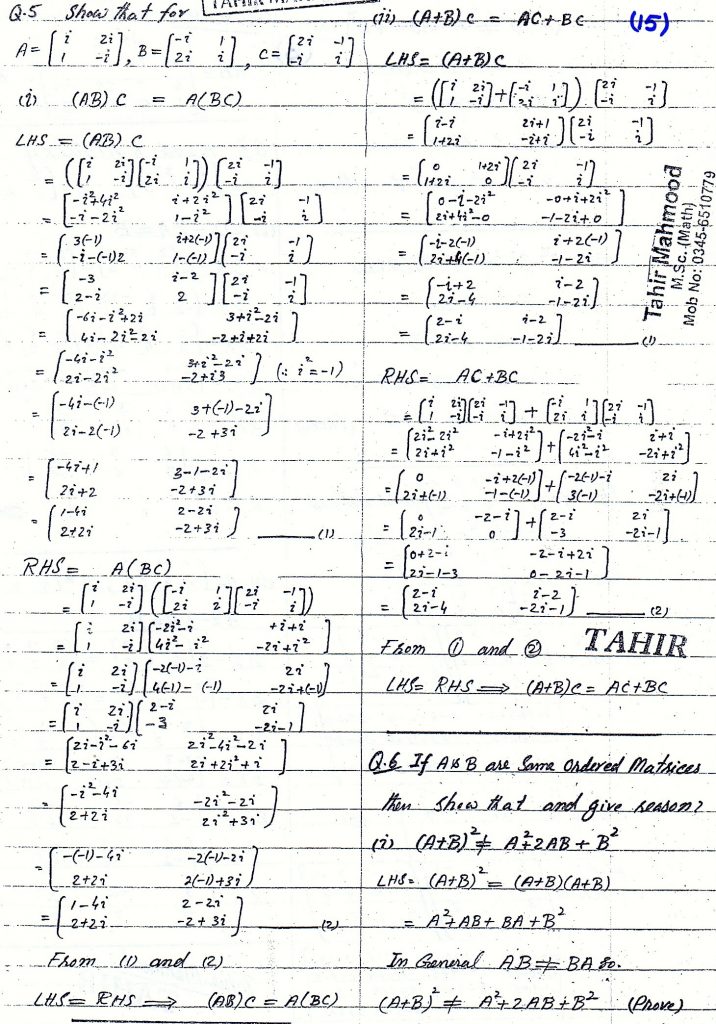 Q.5 Show that for
A = [i 2i; 1 -i], B = [-i 1; 2i i], C = [2i -1; -i i]
(i) (AB) C = A(BC)
LHS = (AB) C
= ([i 2i; 1 -i][-i 1; 2i i]) [2i -1; -i i]
= [-i²+4i² i+2i²; -i-2i² 1-i²] [2i -1; -i i]
= [3(-1) i+2(-1); -i-(-1)2 1-(-1)] [2i -1; -i i]
= [-3 i-2; 2-i 2] [2i -1; -i i]
= [-6i-i²+2i 3+i²-2i; 4i-2i²-2i -2+i+2i]
= [-4i-i² 3+i²-2i; 2i-2i² -2+i3] (∵ i²=-1)
= [-4i-(-1) 3+(-1)-2i; 2i-2(-1) -2+3i]
= [-4i+1 3-1-2i; 2i+2 -2+3i]
= [1-4i 2-2i; 2+2i -2+3i] (1)
RHS = A(BC)
= [i 2i; 1 -i] ([-i 1; 2i i][2i -1; -i i])
= [i 2i; 1 -i] [-2i²-i +i+i; 4i²-i² -2i+i²]
= [i 2i; 1 -i] [-2(-1)-i 2i; 4(-1)-(-1) -2i+(-1)]
= [i 2i; 1 -i] [2-i 2i; -3 -2i-1]
= [2i-i²-6i 2i²-4i²-2i; 2-i+3i 2i+2i²+i]
= [-i²-4i -2i²-2i; 2+2i 2i²+3i]
= [-(-1)-4i -2(-1)-2i; 2+2i 2(-1)+3i]
= [1-4i 2-2i; 2+2i -2+3i] (2)
From (1) and (2)
LHS = RHS ⟹ (AB)C = A(BC)
(ii) (A+B) C = AC+BC (15)
LHS = (A+B)C
= ([i 2i; 1 -i]+[-i 1; 2i i]) [2i -1; -i i]
= [i-i 2i+1; 1+2i -i+i] [2i -1; -i i]
= [0 1+2i; 1+2i 0] [2i -1; -i i]
= [0-i-2i² -0+i+2i²; 2i+4i²-0 -1-2i+0]
= [-i-2(-1) i+2(-1); 2i+4(-1) -1-2i]
= [-i+2 i-2; 2i-4 -1-2i]
= [2-i i-2; 2i-4 -1-2i] (1)
Tahir Mahmood
M.Sc. (Math)
Mob No: 0345-6510779
RHS = AC+BC
= [i 2i; 1 -i][2i -1; -i i] + [-i 1; 2i i][2i -1; -i i]
= [2i²-2i² -i+2i²; 2i+i² -1-i²] + [-2i²-i i+i; 4i²-i² -2i+i²]
= [0 -i+2(-1); 2i+(-1) -1-(-1)] + [-2(-1)-i 2i; 3(-1) -2i+(-1)]
= [0 -2-i; 2i-1 0] + [2-i 2i; -3 -2i-1]
= [0+2-i -2-i+2i; 2i-1-3 0-2i-1]
= [2-i i-2; 2i-4 -2i-1] (2)
From ① and ② TAHIR
LHS = RHS ⟹ (A+B)C = AC+BC
Q.6 If A & B are Same ordered Matrices
then show that and give reason?
(i) (A+B)² ≠ A²+2AB+B²
LHS = (A+B)² = (A+B)(A+B)
= A²+AB+BA+B²
In General AB ≠ BA So.
(A+B)² ≠ A²+2AB+B² (Prove)